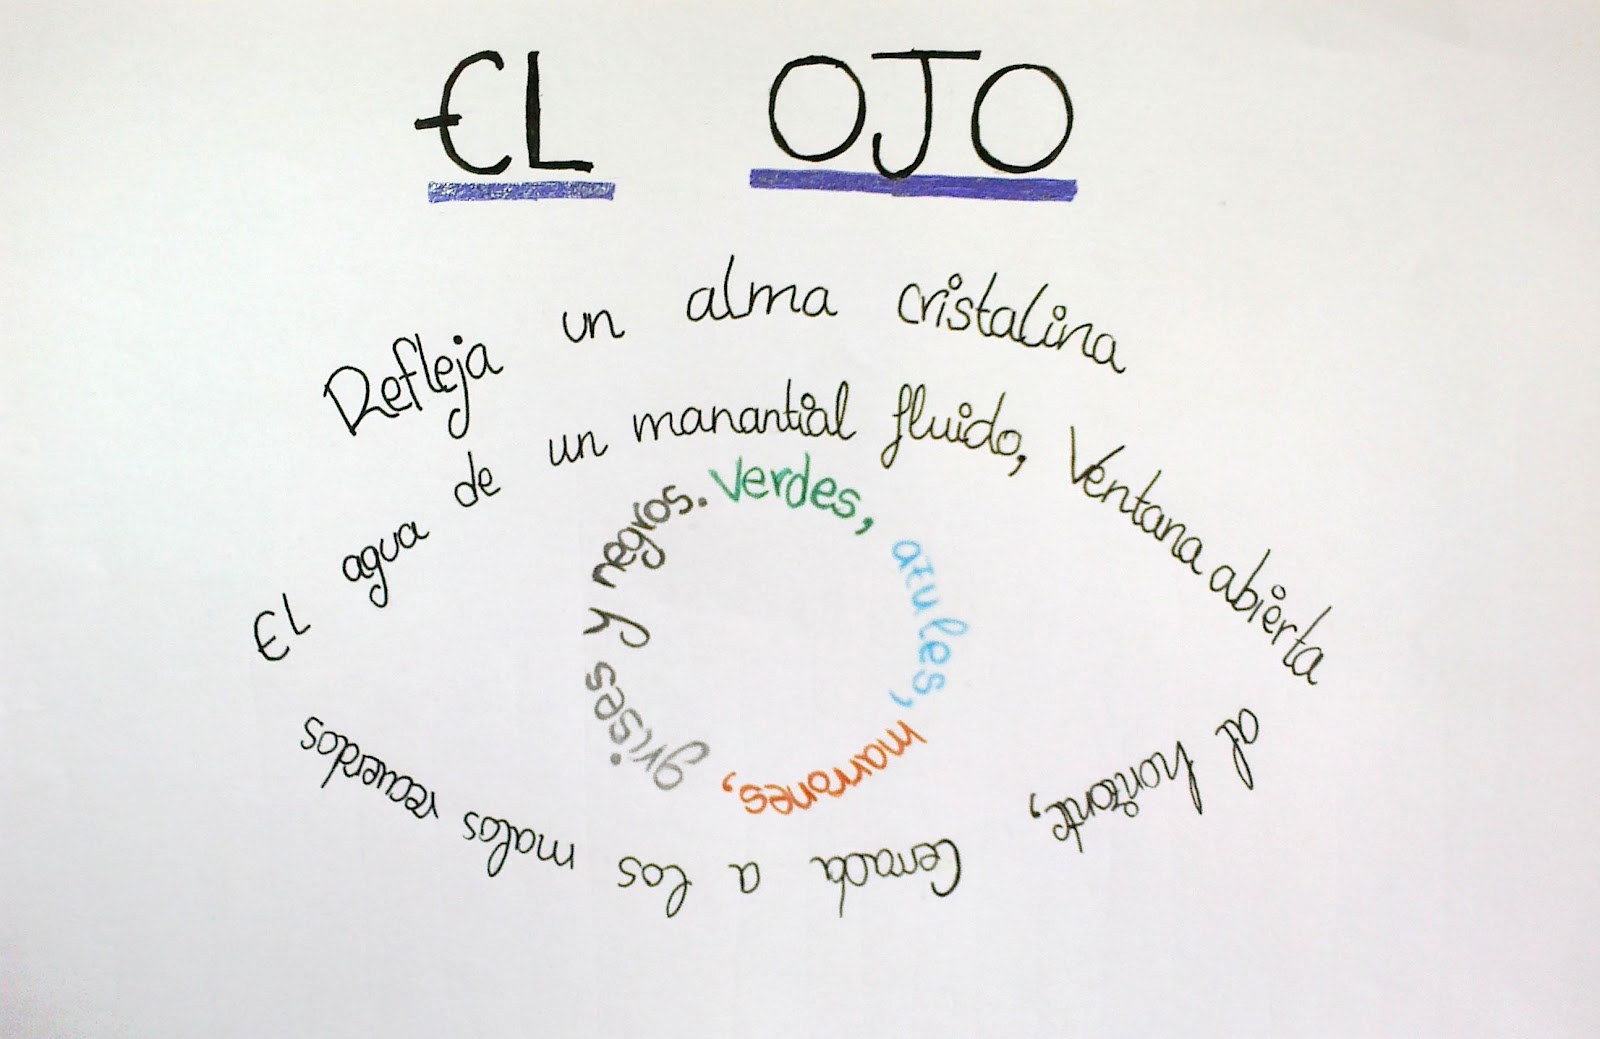 EL OJO
Refleja un alma cristalina
El agua de un manantial fluido, Ventana abierta
al horizonte, Cerrada a los malos recuerdos
Verdes, azules, marrones, grises y negros.